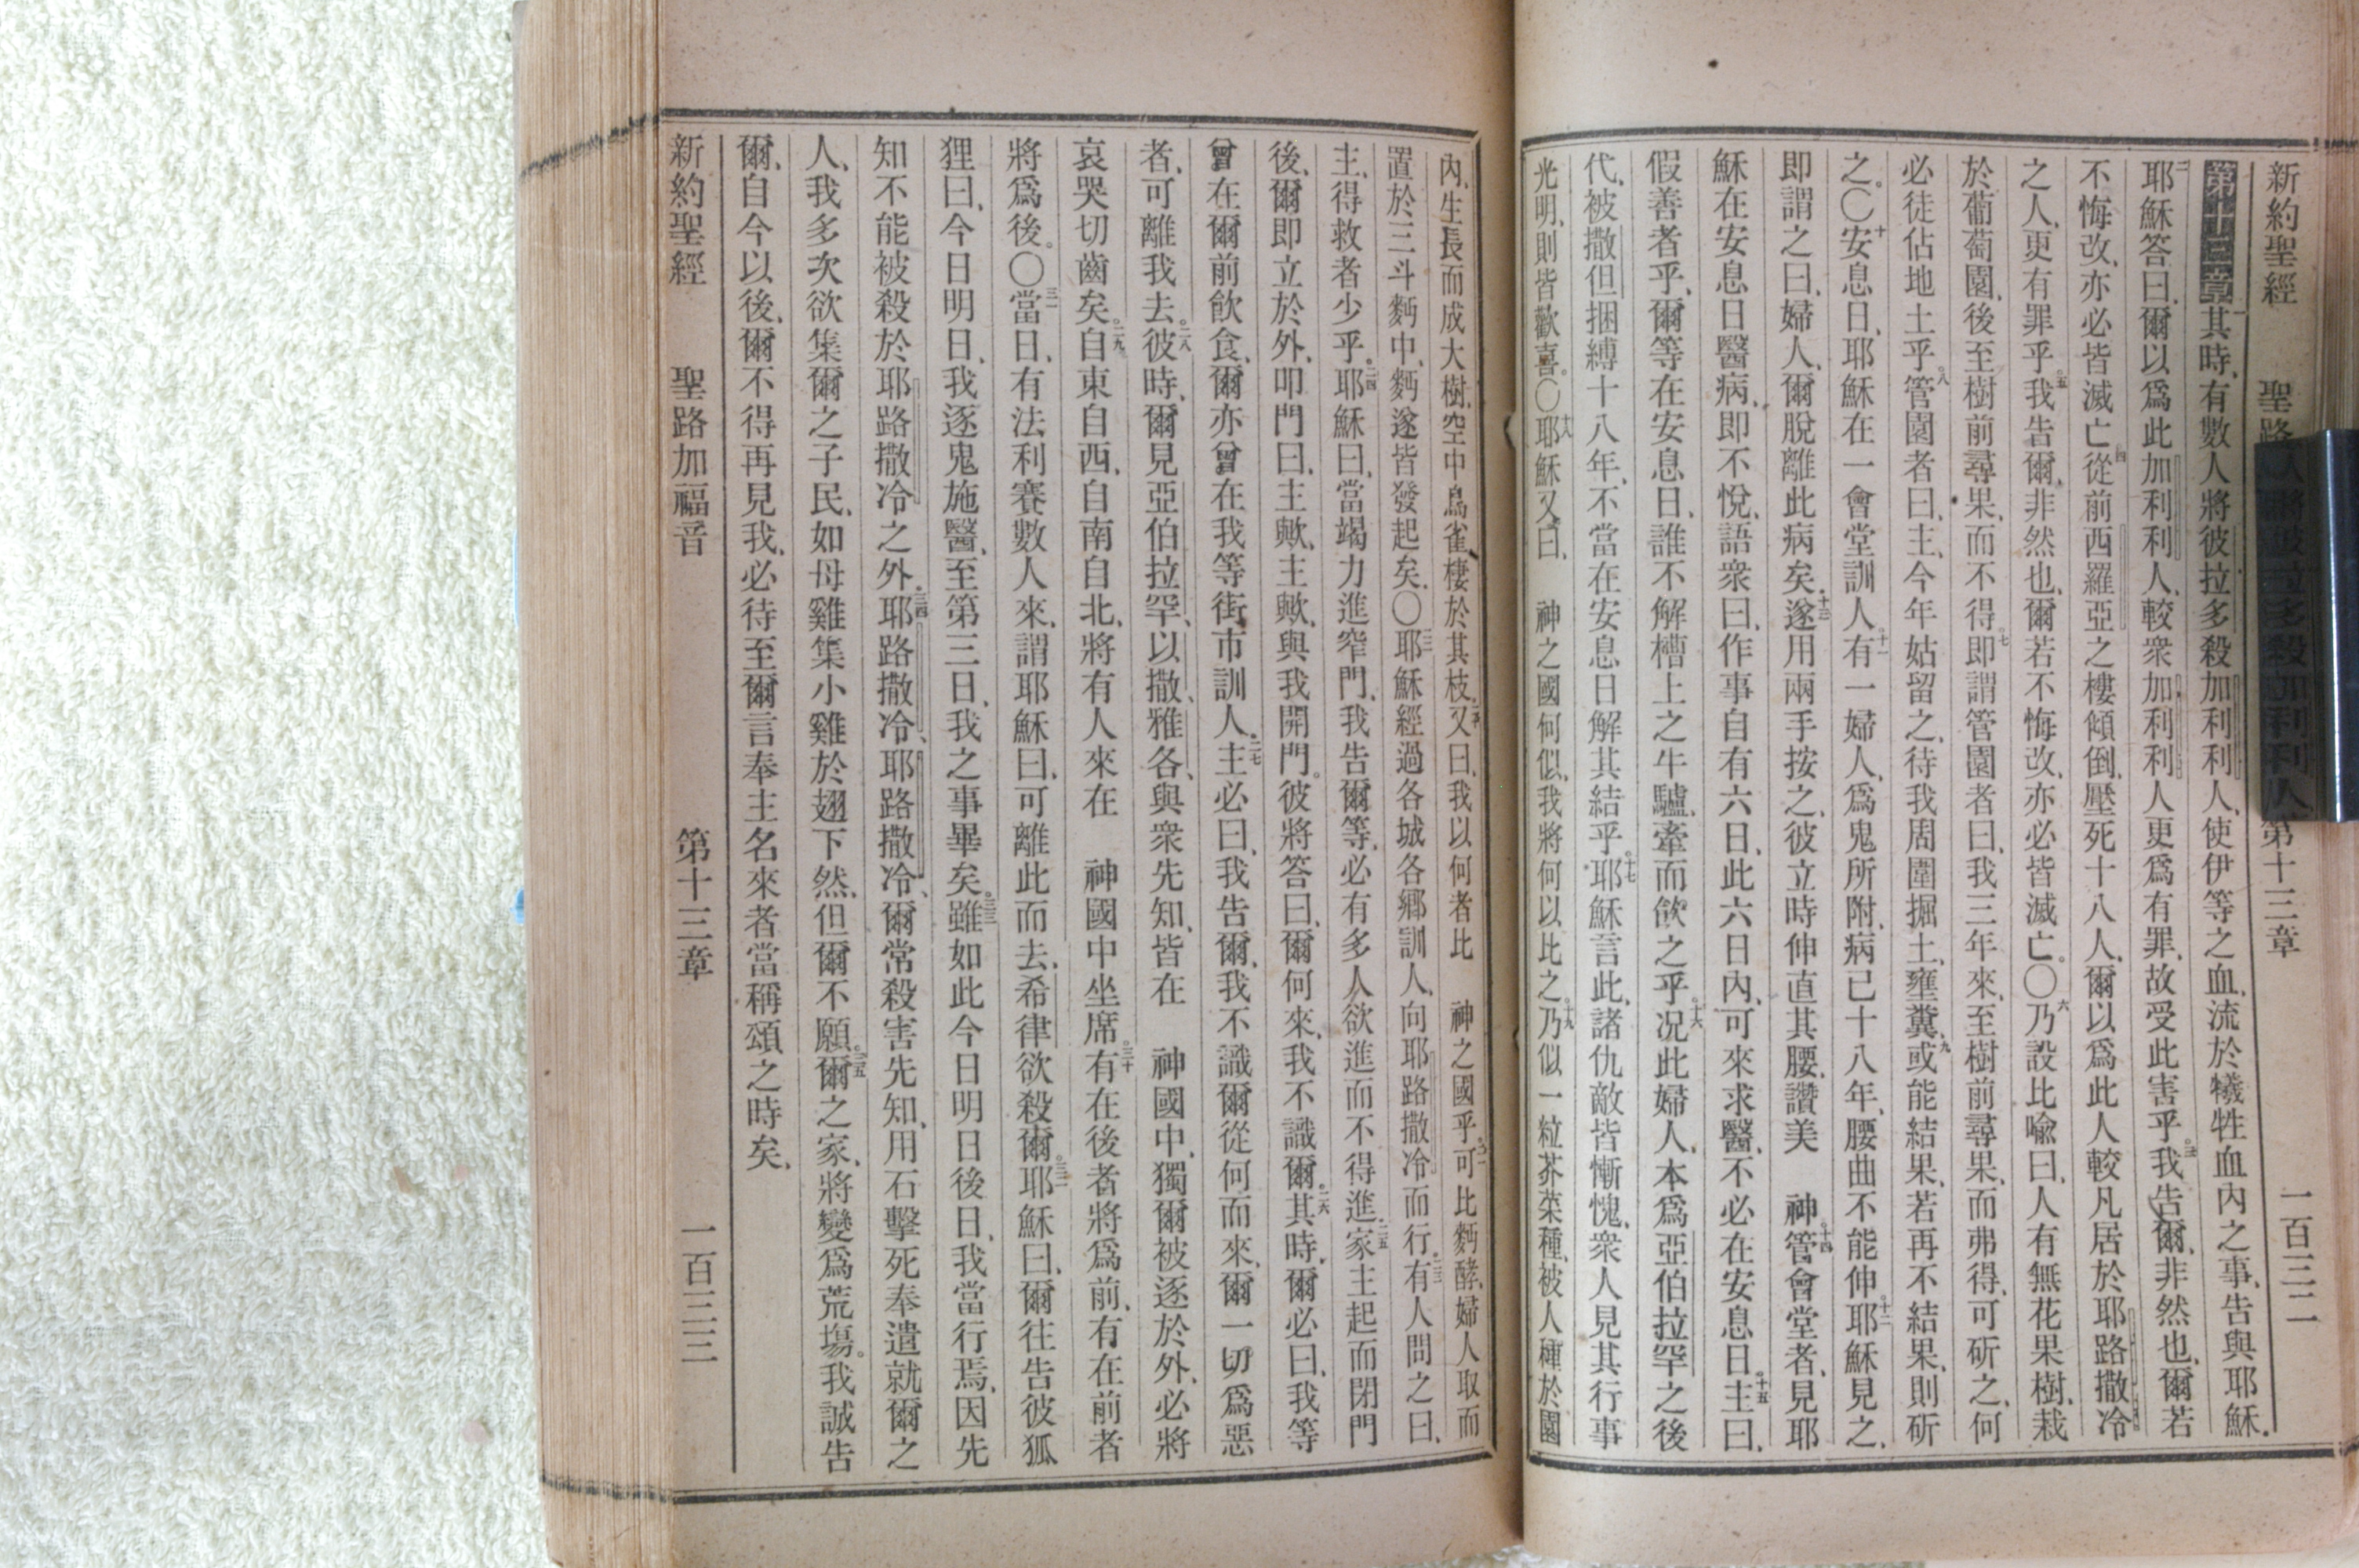 新約聖經 第十三章 一百三二
第十三章 一其時、有數人將彼拉多殺加利利人、使伊等之血、流於犧牲血內之事、告與耶穌。
二耶穌答曰、爾以爲此加利利人、較衆加利利人更爲有罪、故受此害乎。三我告爾、非然也、爾若
不悔改、亦必皆滅亡。四從前西羅亞之樓傾倒、壓死十八人、爾以爲此人較凡居於耶路撒冷
之人、更有罪乎。五我告爾、非然也、爾若不悔改、亦必皆滅亡。〇六乃設比喩曰、人有無花果樹、栽
於葡萄園、後至樹前尋果、而不得。七即謂管園者曰、我三年來、至樹前尋果、而弗得、可斫之、何
必徒佔地土乎。八管園者曰、主、今年姑留之、待我周圍掘土、壅糞、九或能結果、若再不結果、則斫
之。〇十安息日、耶穌在一會堂訓人。十一有一婦人、爲鬼所附、病已十八年、腰曲不能伸。十二耶穌見之、
即謂之曰、婦人、爾脫離此病矣。十三遂用兩手按之、彼立時伸直其腰、讚美 神。十四管會堂者、見耶
穌在安息日醫病、即不悅、語衆曰、作事自有六日、此六日內、可來求醫、不必在安息日。十五主曰、
假善者乎、爾等在安息日、誰不解槽上之牛驢、牽而飲之乎。十六況此婦人、本爲亞伯拉罕之後
代、被撒但捆縛十八年、不當在安息日解其結乎。十七耶穌言此、諸仇敵皆慚愧、衆人見其行事
光明、則皆歡喜。〇十八耶穌又曰、 神之國何似、我將何以比之。十九乃似一粒芥菜種、被人種於園
內、生長而成大樹、空中鳥雀棲於其枝。二十又曰、我以何者比 神之國乎。二一可比麪酵、婦人取而
置於三斗麪中、麪遂皆發起矣。〇二二耶穌經過各城各鄉訓人、向耶路撒冷而行。二三有人問之曰、
主、得救者少乎。二四耶穌曰、當竭力進窄門、我告爾等、必有多人欲進而不得進。二五家主起而閉門
後、爾即立於外、叩門曰、主歟、主歟、與我開門。彼將答曰、爾何來、我不識爾。二六其時、爾必曰、我等
曾在爾前飲食、爾亦曾在我等街市訓人。二七主必曰、我告爾、我不識爾從何而來、爾一切爲惡
者、可離我去。二八彼時、爾見亞伯拉罕、以撒、雅各、與衆先知、皆在 神國中、獨爾被逐於外、必將
哀哭切齒矣。二九自東自西、自南自北、將有人來在 神國中坐席。三十有在後者將爲前、有在前者
將爲後。〇三一當日、有法利賽數人來、謂耶穌曰、可離此而去、希律欲殺爾。三二耶穌曰、爾往告彼狐
狸曰、今日明日、我逐鬼施醫、至第三日、我之事畢矣。三三雖如此今日明日後日、我當行焉、因先
知不能被殺於耶路撒冷之外。三四耶路撒冷、耶路撒冷、爾常殺害先知、用石擊死奉遣就爾之
人、我多次欲集爾之子民、如母雞集小雞於翅下然、但爾不願。三五爾之家、將變爲荒塲。我誠告
爾、自今以後、爾不得再見我、必待至爾言奉主名來者當稱頌之時矣、
新約聖經 聖路加福音 第十三章 一百三三